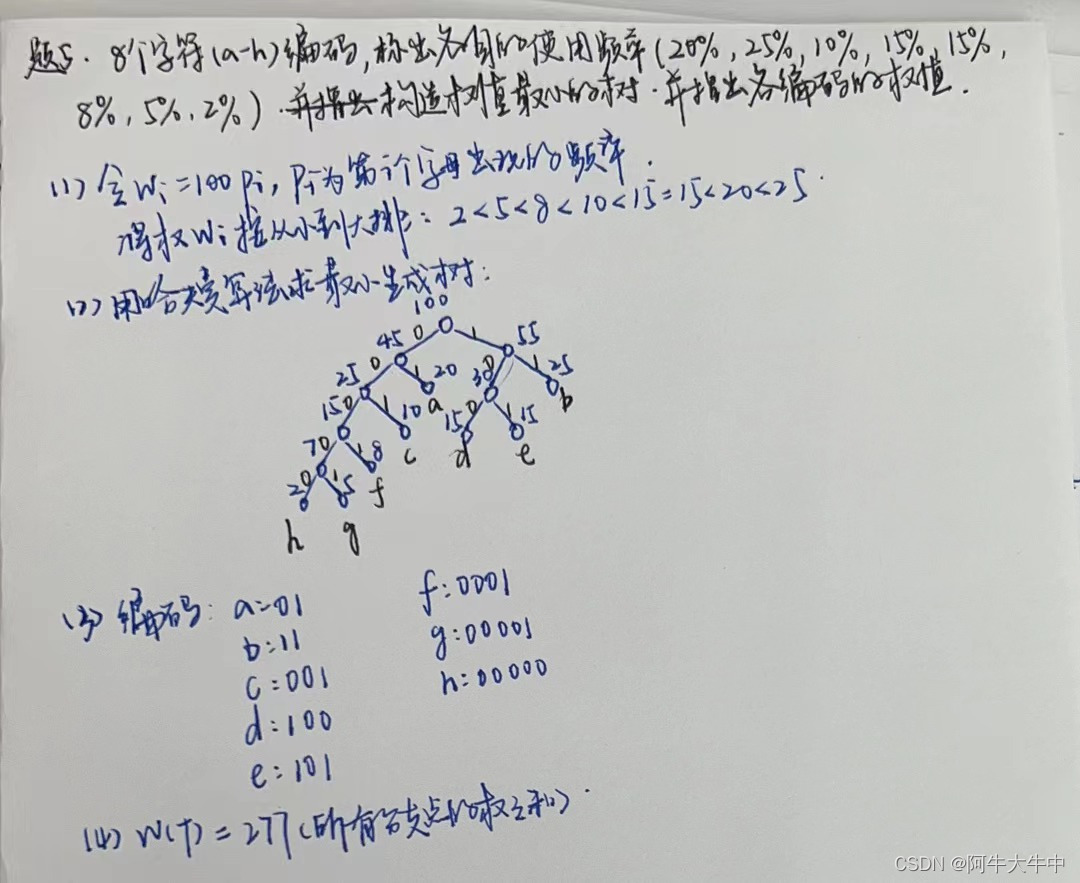 题5. 8个字符(a-h)编码,标出各自的使用频率(20%,25%,10%,15%,15%,
8%,5%,2%).并指出构造权值最小的树.并指出各编码的权值.
(1)令Wi=100Pi,Pi为第i个字母出现的频率.
得权Wi按从小到大排:2<5<8<10<15=15<20<25.
(2)用哈夫曼算法求最小生成树:
100
45 0 1 55
25 0 1 20 30 1 25
15 0 1 10 a 15 0 1 15 b
7 0 1 8 c d e
2 0 1 5 f
h g
(3)编码: a=01 f:0001
b=11 g:00001
c=001 h:00000
d=100
e=101
(4) W(T)=277(所有分支点的权之和).
CSDN @阿牛大牛中